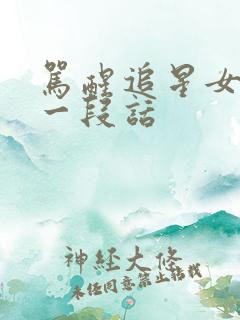 罵醒追星女
一段話
神經大條
未經同意禁止搭載